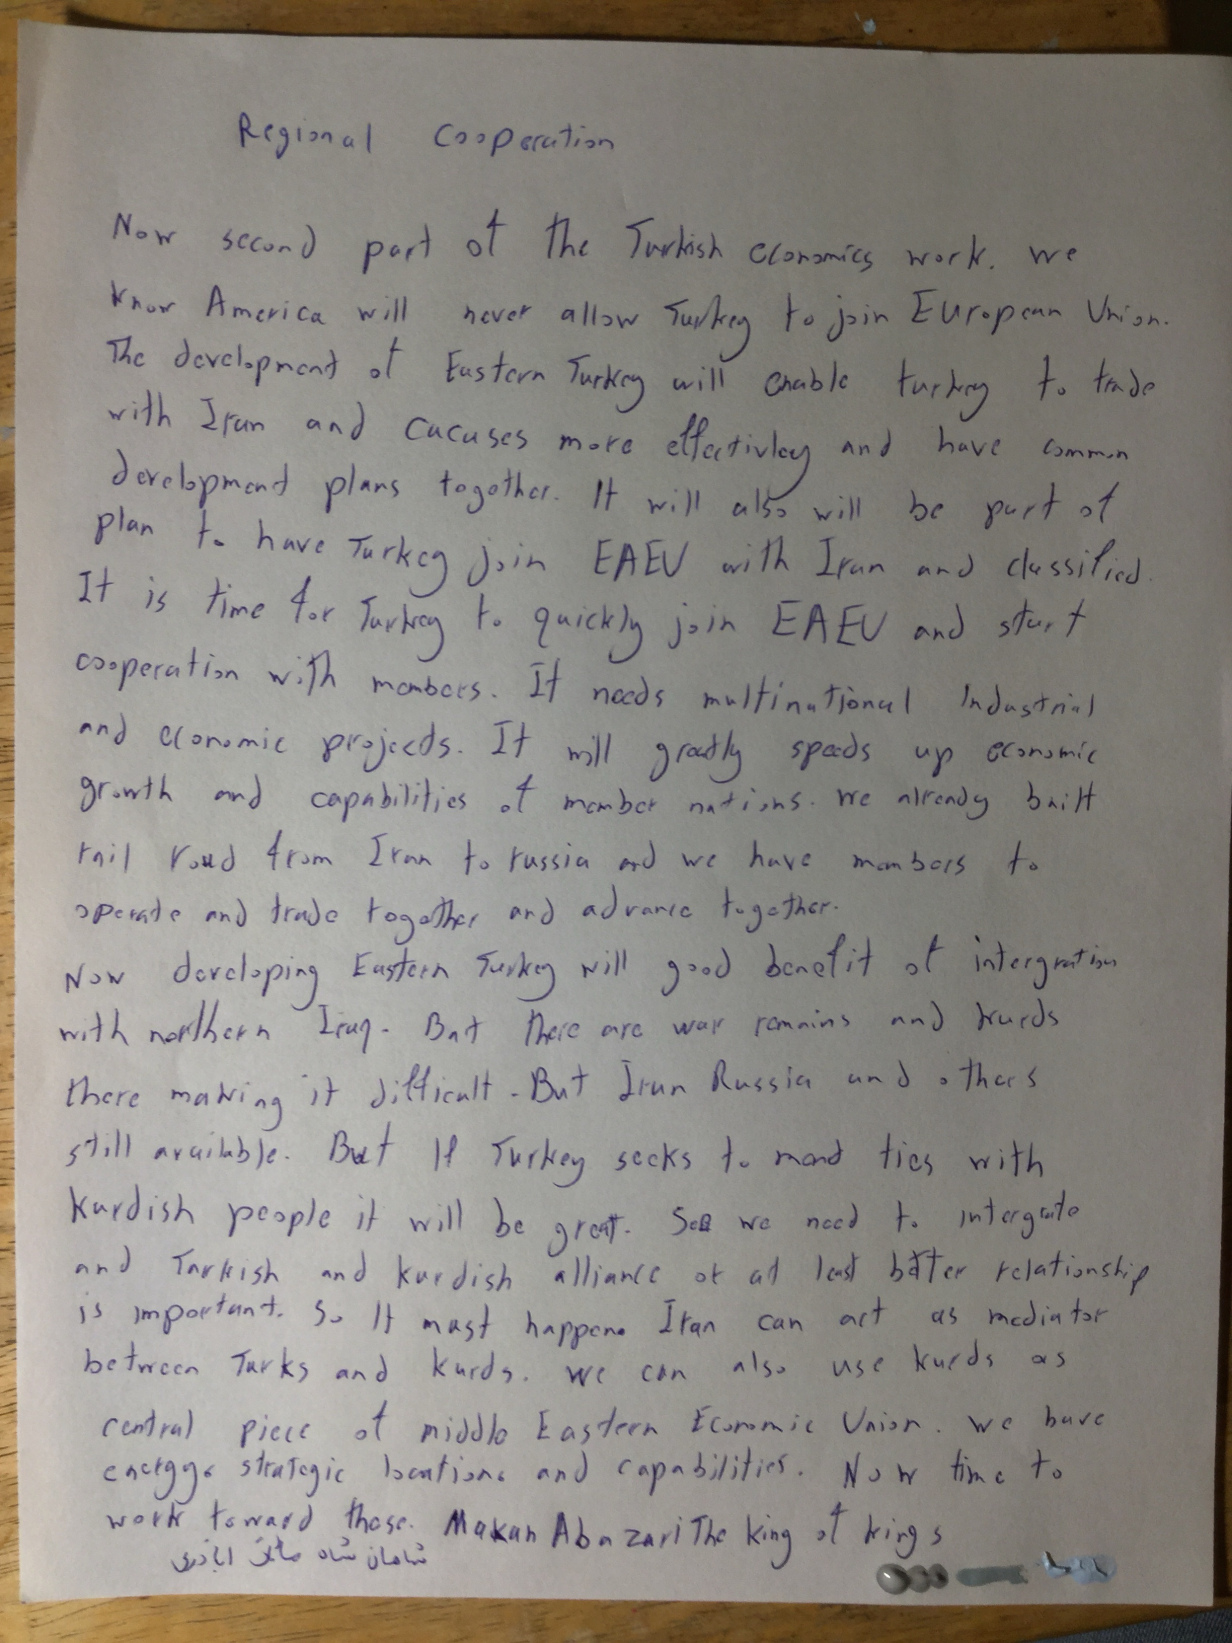 Regional Cooperation
Now second part of the Turkish economics work. we
know America will never allow Turkey to join European Union.
The development of Eastern Turkey will enable turkey to trade
with Iran and cacuses more effectivley and have common
development plans together. It will also will be part of
plan to have Turkey join EAEU with Iran and classified.
It is time for Turkey to quickly join EAEU and start
cooperation with members. It needs multinational Industrial
and economic projects. It will greatly speeds up economic
growth and capabilities of member nations. we already built
rail road from Iran to russia and we have members to
operate and trade together and advance together.
Now developing Eastern Turkey will good benefit of intergration
with northern Iraq. But there are war remains and kurds
there making it difficult. But Iran Russia and others
still available. But If Turkey seeks to mend ties with
kurdish people it will be great. See we need to intergrate
and Turkish and kurdish alliance or at least better relationship
is important. So It must happen. Iran can act as mediator
between Turks and kurds. we can also use kurds as
central piece of middle Eastern Economic Union. we have
energy, strategic locations and capabilities. Now time to
work toward those. Makan Abazari The king of kings
شاهان شاه ماکان اباذری